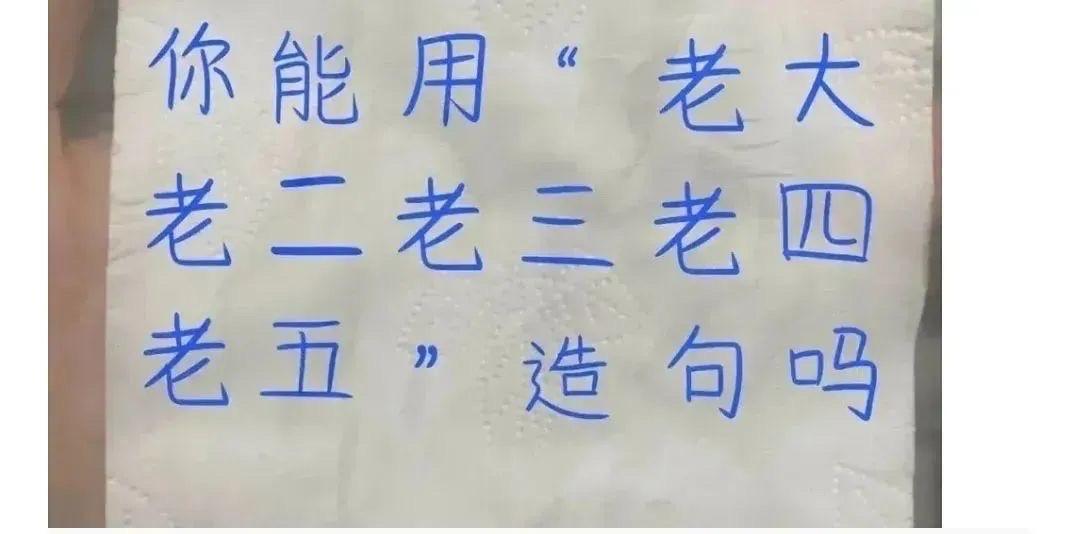 你能用“老大
老二老三老四
老五”造句吗